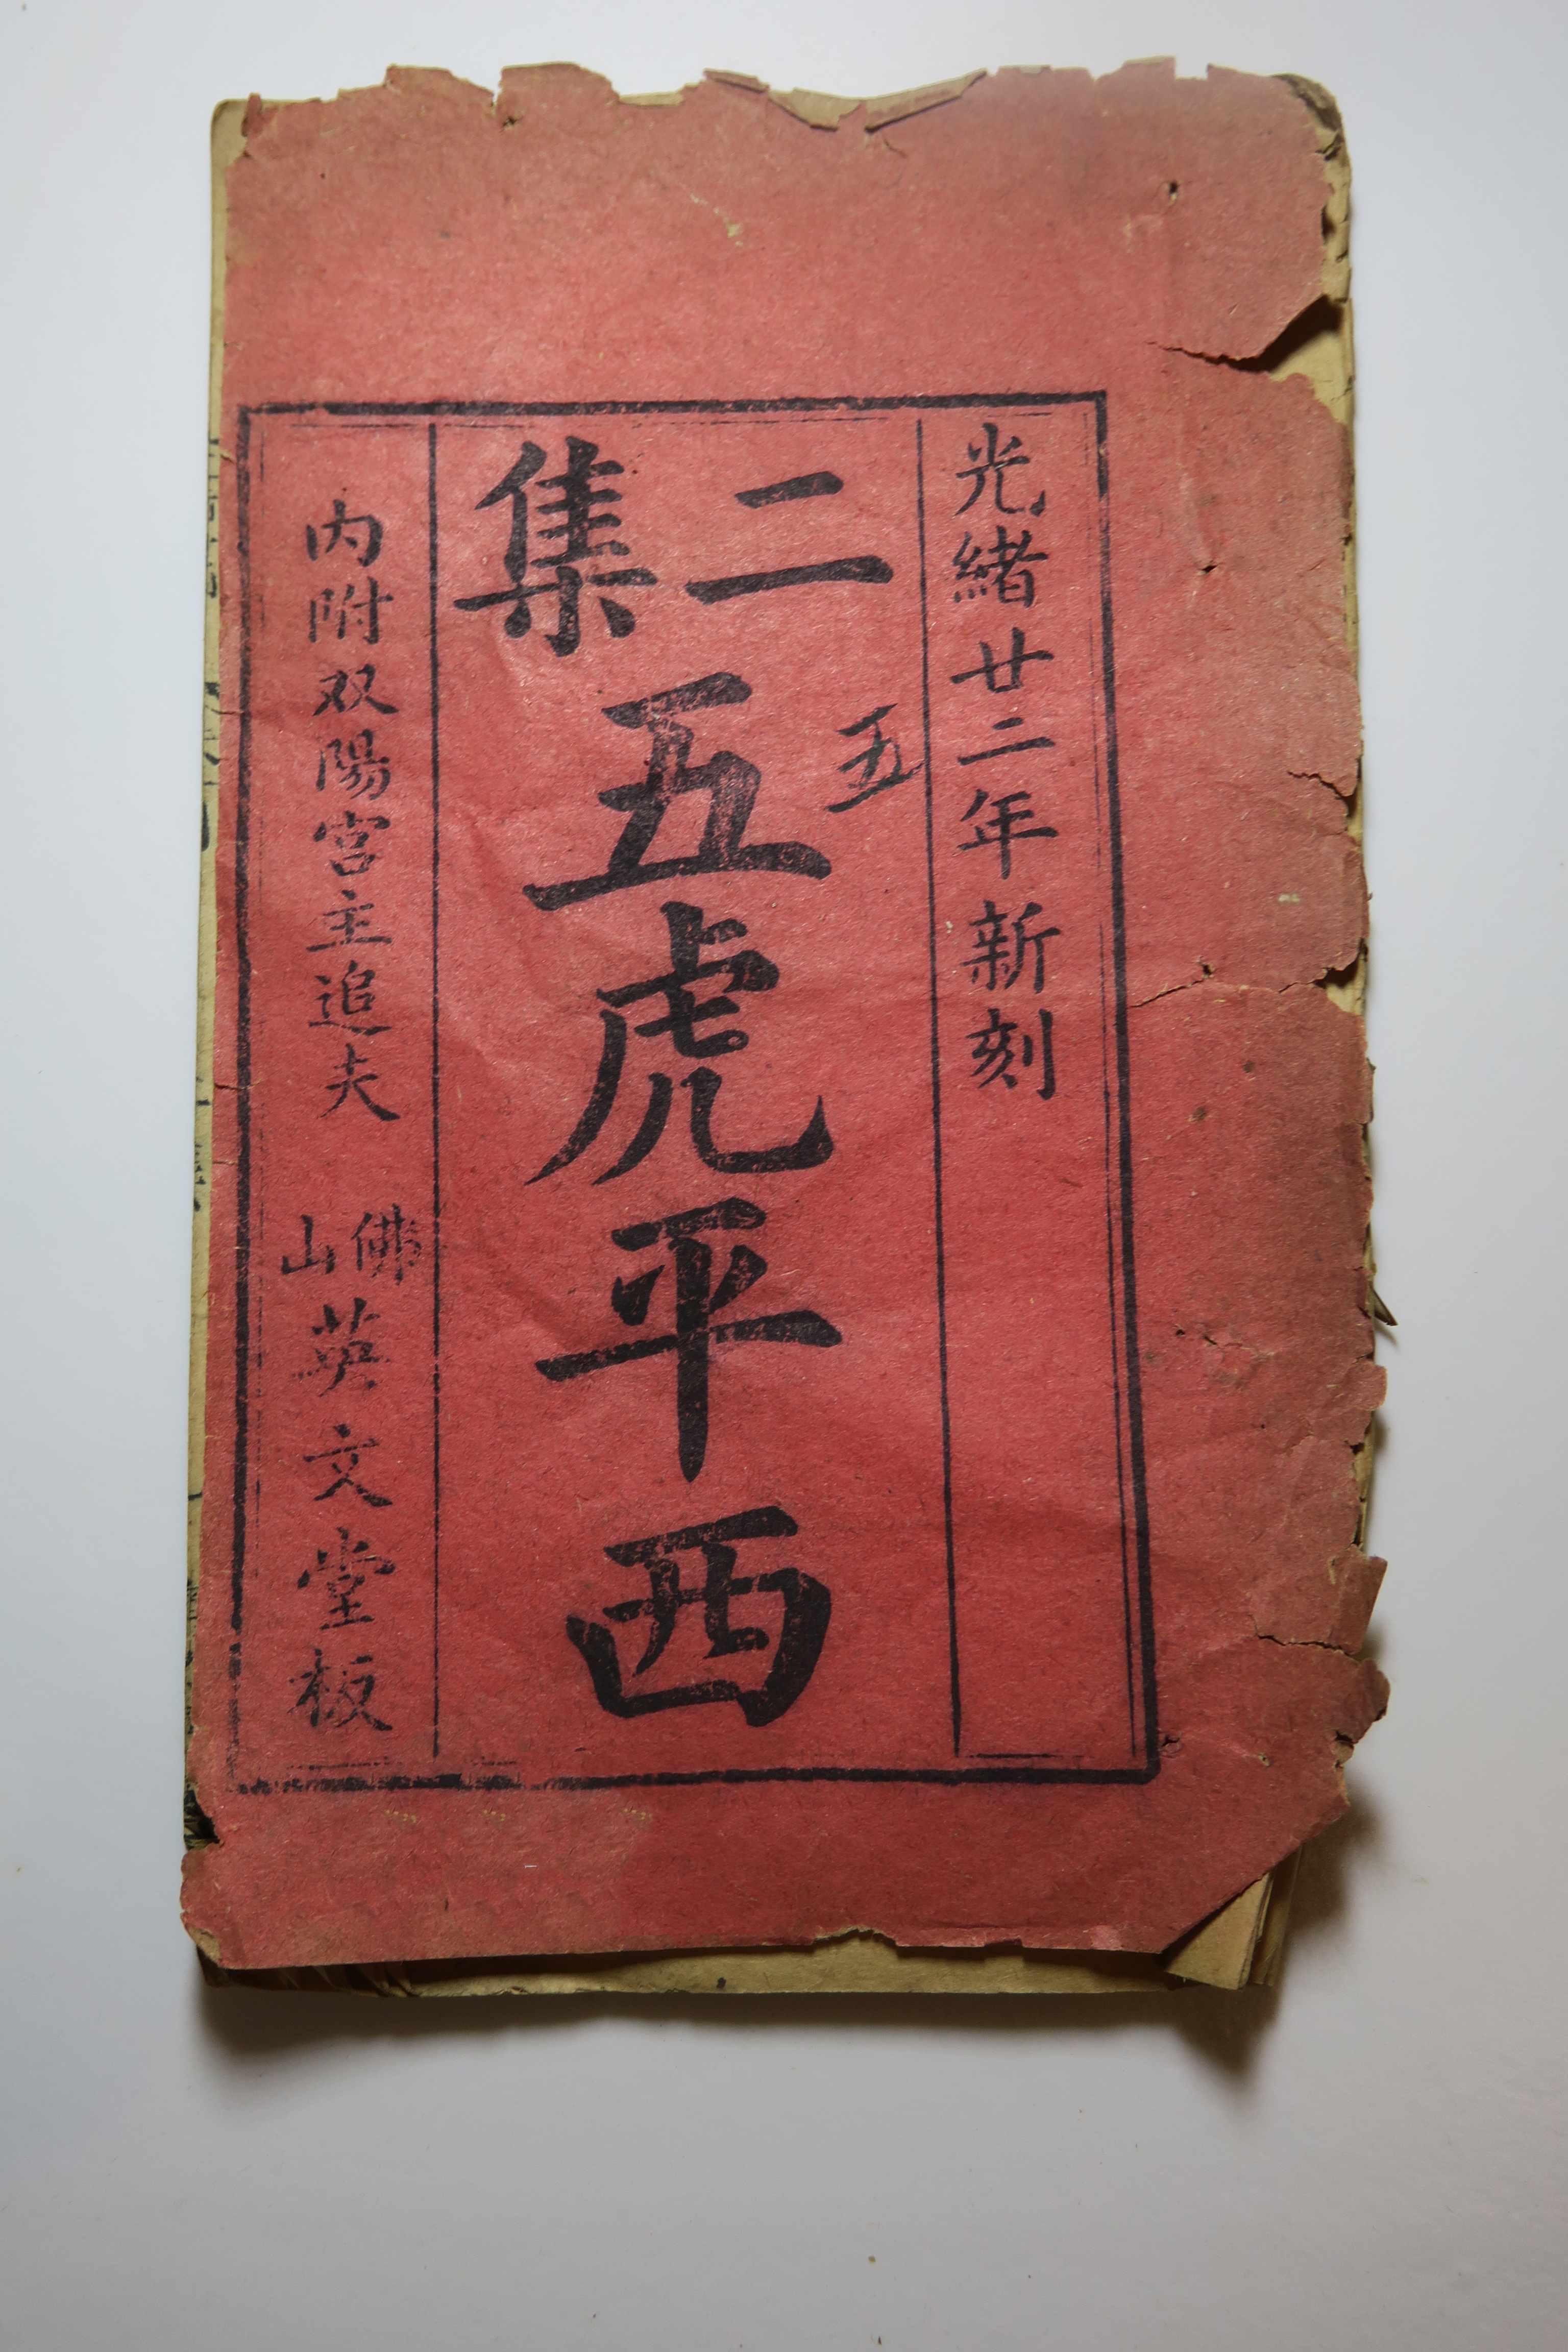 光緒廿二年新刻
二集
五
五虎平西
内附双陽宮主追夫
佛山
英文堂板